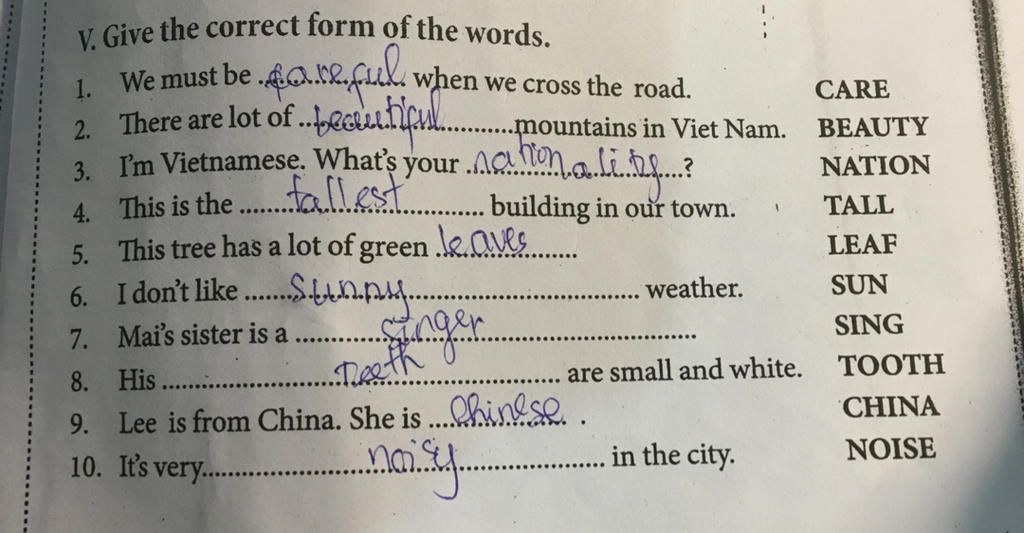 V. Give the correct form of the words.
1. We must be careful when we cross the road. CARE
2. There are lot of beautiful mountains in Viet Nam. BEAUTY
3. I'm Vietnamese. What's your nationality ? NATION
4. This is the tallest building in our town. TALL
5. This tree has a lot of green leaves LEAF
6. I don't like sunny weather. SUN
7. Mai's sister is a singer SING
8. His Teeth are small and white. TOOTH
9. Lee is from China. She is Chinese . CHINA
10. It's very noisy in the city. NOISE